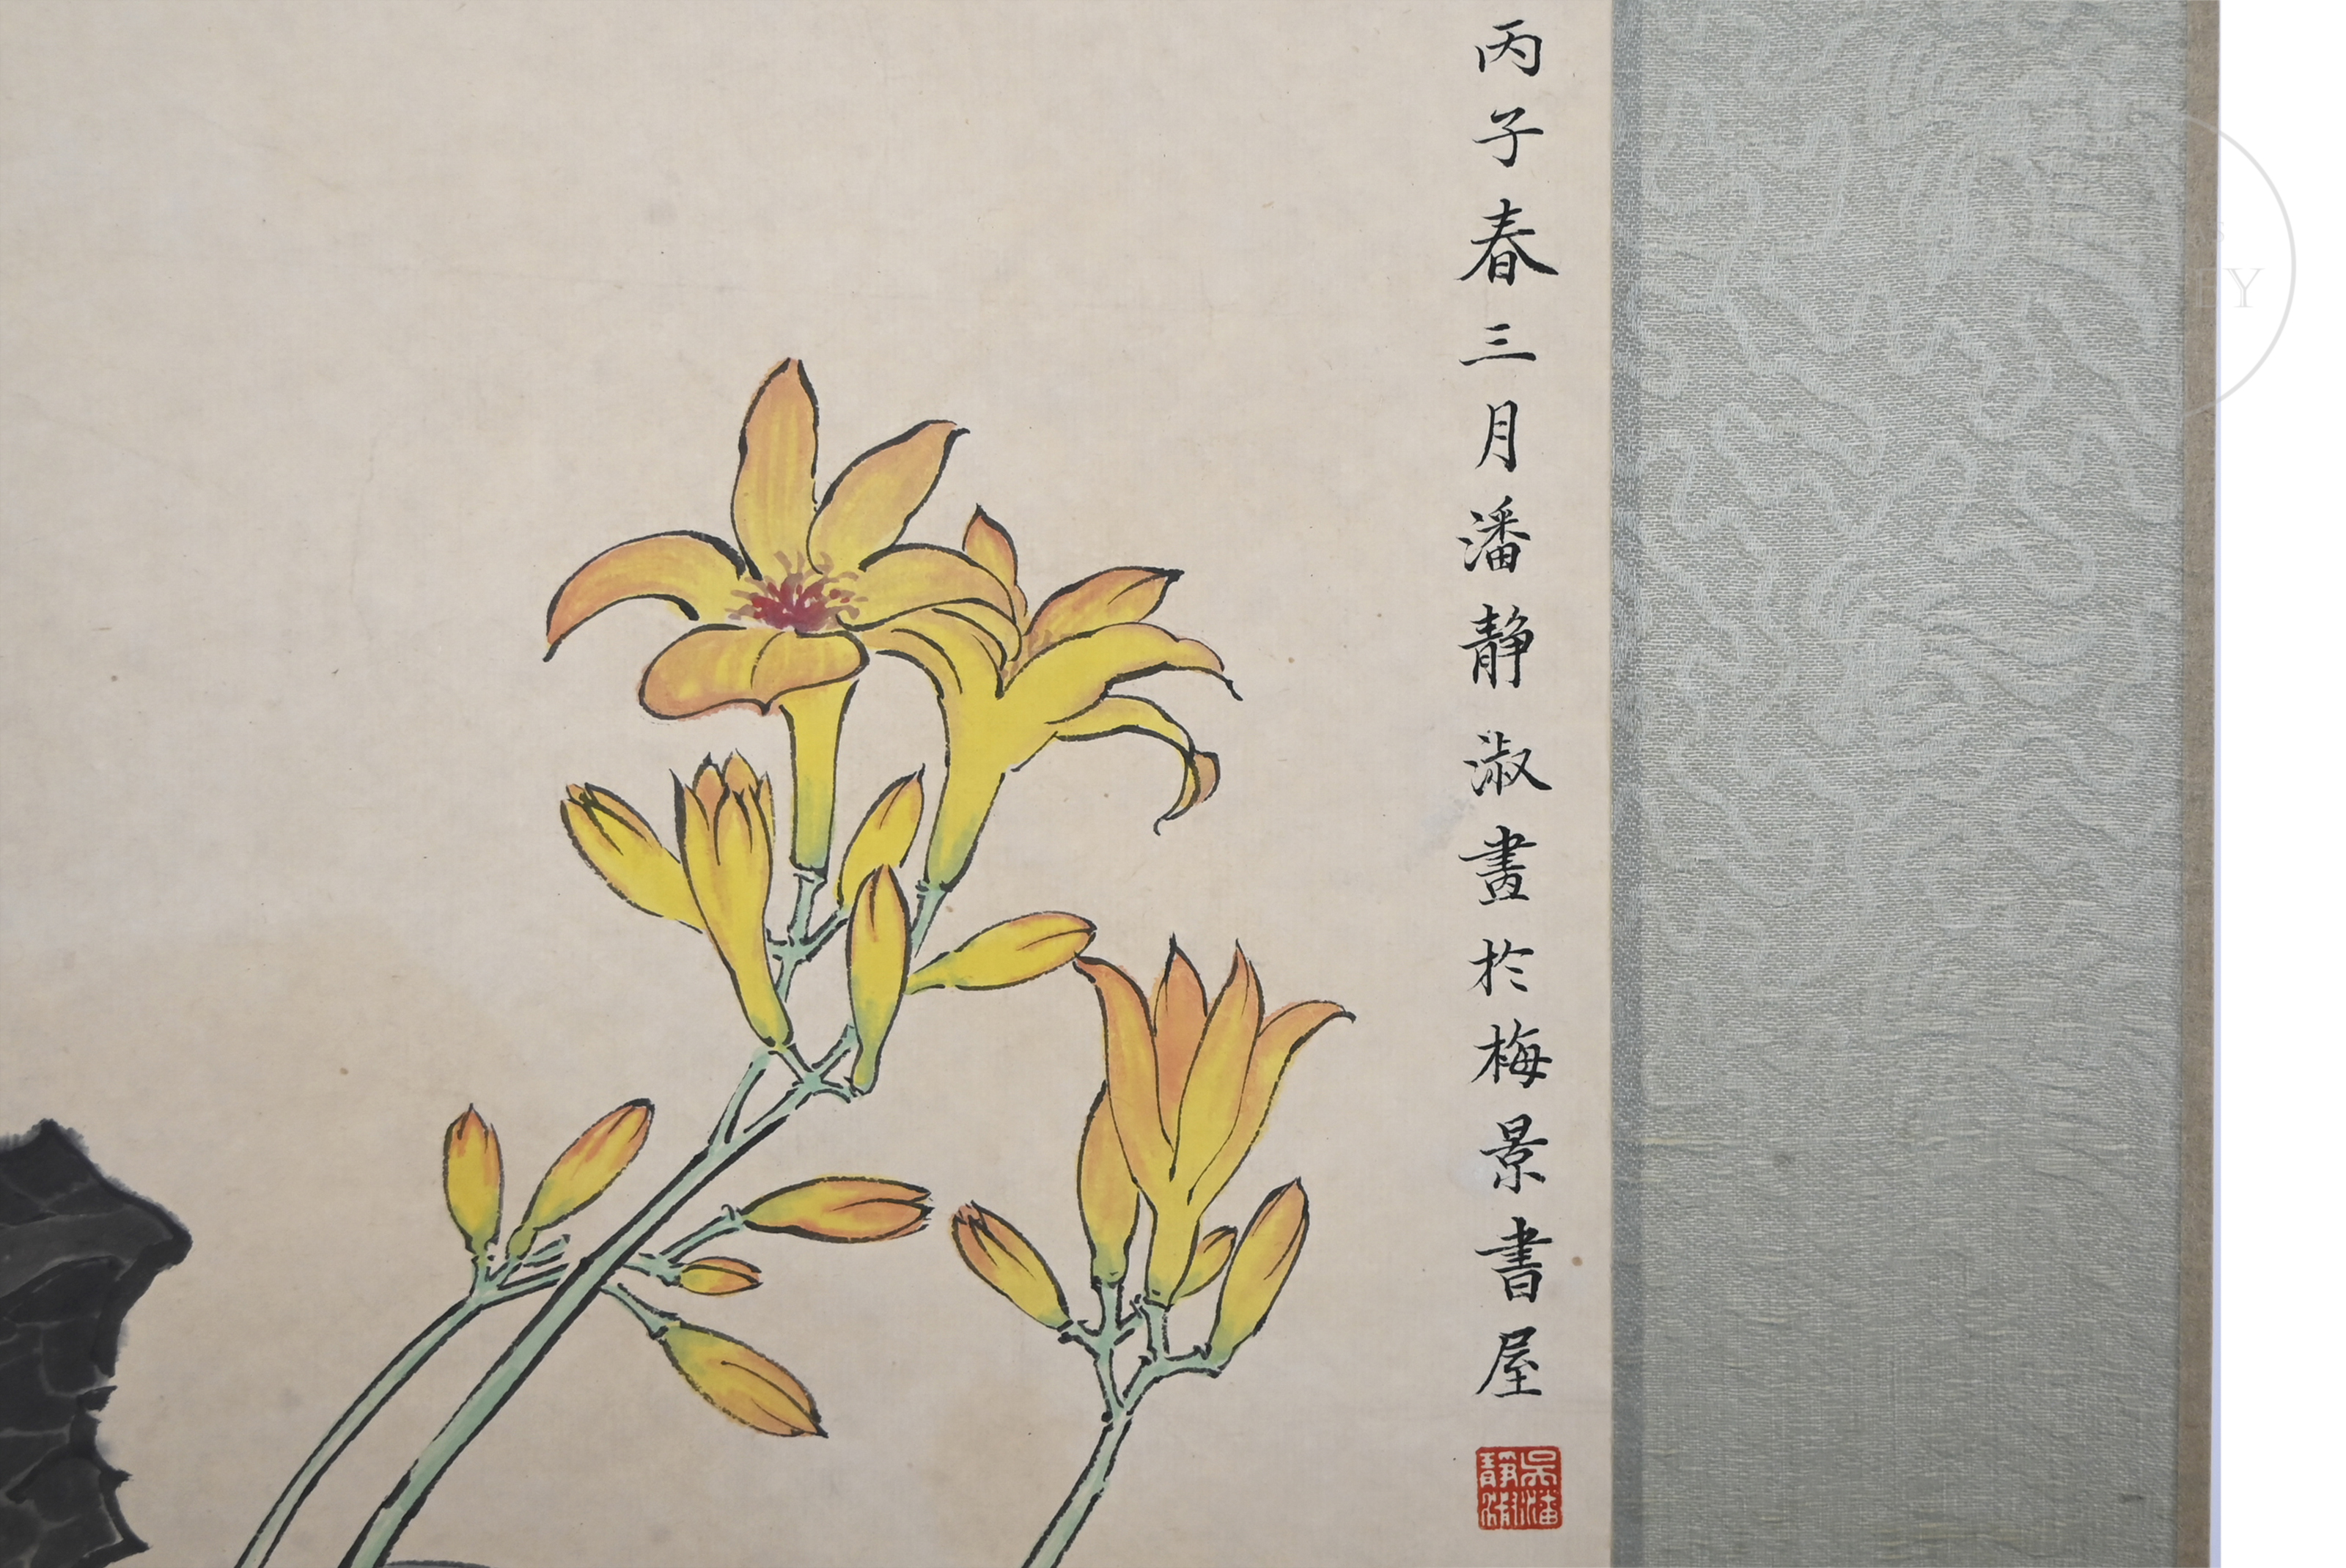 丙子春三月潘静淑畫於梅景書屋
吳潘靜淑
EY